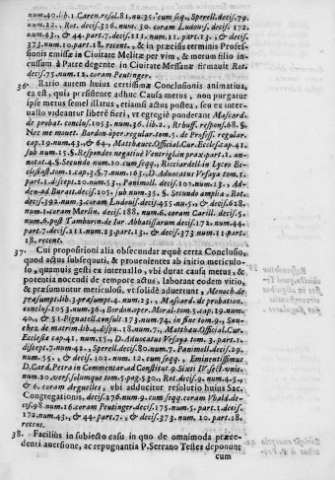 num.40.lib.1. Caren.resol.81.nu.35. cum seq., Sperell.decis.79.
num.12. Rot. decis.326. num.30. coram Ludouis. decis. 172.
num.63., & 44.part.7. decis.111. num.11. part.13., & decis.
373. num.10. part.18. recent., & in præcisis terminis Profes-
sionis emissæ in Ciuitate Melitæ per vim, & metum filio in-
cussum à Patre degente in Ciuitate Messanæ firmauit Rot.
decis.75. num.11. coram Peutinger.
36. Ratio autem huius certissimæ Conclusionis animatiua,
ea est, quia persistente adhuc Causa metus, non purgatur
ipse metus semel illatus, etiamsi actus postea, seu ex inter-
uallo videantur liberè fieri, vt egregiè ponderant Mascard.
de probat. conclus.1053. num.36. lib.2., Rebuff. respons.68. §.
Nec me mouet. Bordon. oper. regular. tom.5. de Profess. regular.
cap.19. num.43., & 64., Matthæucc. Official. Cur. Eccles. cap.41.
sub num.15. §. Respondeo negatiuè Ventrigl. in prax. part.1. an-
notat.4. §. Secundo num.20. cum seqq., Ricciardell. in Lycæo Ec-
clesiast. tom.1. cap.3. §.7. num.163., D. Aduocatus Vesaya tom.5.
part.1. discept.20. num.53., Panimoll. decis.107. num.13., Ad-
den. ad Buratt. decis.105. sub num.35. §. Secundo amplia, Rota
decis.392. num.3. coram Ludouis. decis.455. nu.5., & decis.628.
num.1. coram Merlin. decis.188. num.6. coram Carill. decis.5.
num.6. post Tamburin. de Iur. Abbatissarum decis.172. num.44.
part.7. decis.111. num.23. part.13., & decis.373. num.11. part.
18. recent.
37. Cui propositioni alia obsecundat æquè certa Conclusio,
quod actus subsequuti, & prouenientes ab initio meticulo-
so, quamuis gesti ex interuallo, vbi durat causa metus, &
potentia nocendi de tempore actus, laborant eodem vitio,
& præsumuntur meticulosi, vt solidè aduertunt, Menoch. de
præsumpt. lib.3. præsumpt.4. num.23., Mascard. de probation.
conclus.1053. num.36., Bordon. oper. Moral. tom.5. cap.19. num.
40., & 51. Pignatell. consult.173. num.74. in fine tom.9., San-
chez de matrim. lib.4. disp.18. num.7., Matthæu. Official. Cur.
Ecclesiæ cap.41. num.15., D. Aduocatus Vesaya tom.3. part.1.
discept.7. num.42., Sperell. decis.80. num.7. Panimoll. decis.29.
num.55., & decis.102. num.12. cum seqq. Eminentissimus
D. Card. Petra in Commentar. ad Constitut.9. Sixti IV. sect. vnic.
num.20. vers. solumque tom.5. pag.530., Rot. decis.9. num.4., 5.,
& 6. coram Arguelles, vbi adducitur resolutio huius Sac.
Congregationis, decis.276. num.9. cum seqq. coram Vbald. de-
cis.98. num.16. coram Peutinger. decis.175. num.5. part.1. decis.
172. num.43., & 44. part.7., & decis.373. num.10. part.18.
recent.
38. Facilius in subiecto casu in quo de omnimoda præce-
denti auersione, ac repugnantia P. Serrano Testes deponunt
cum